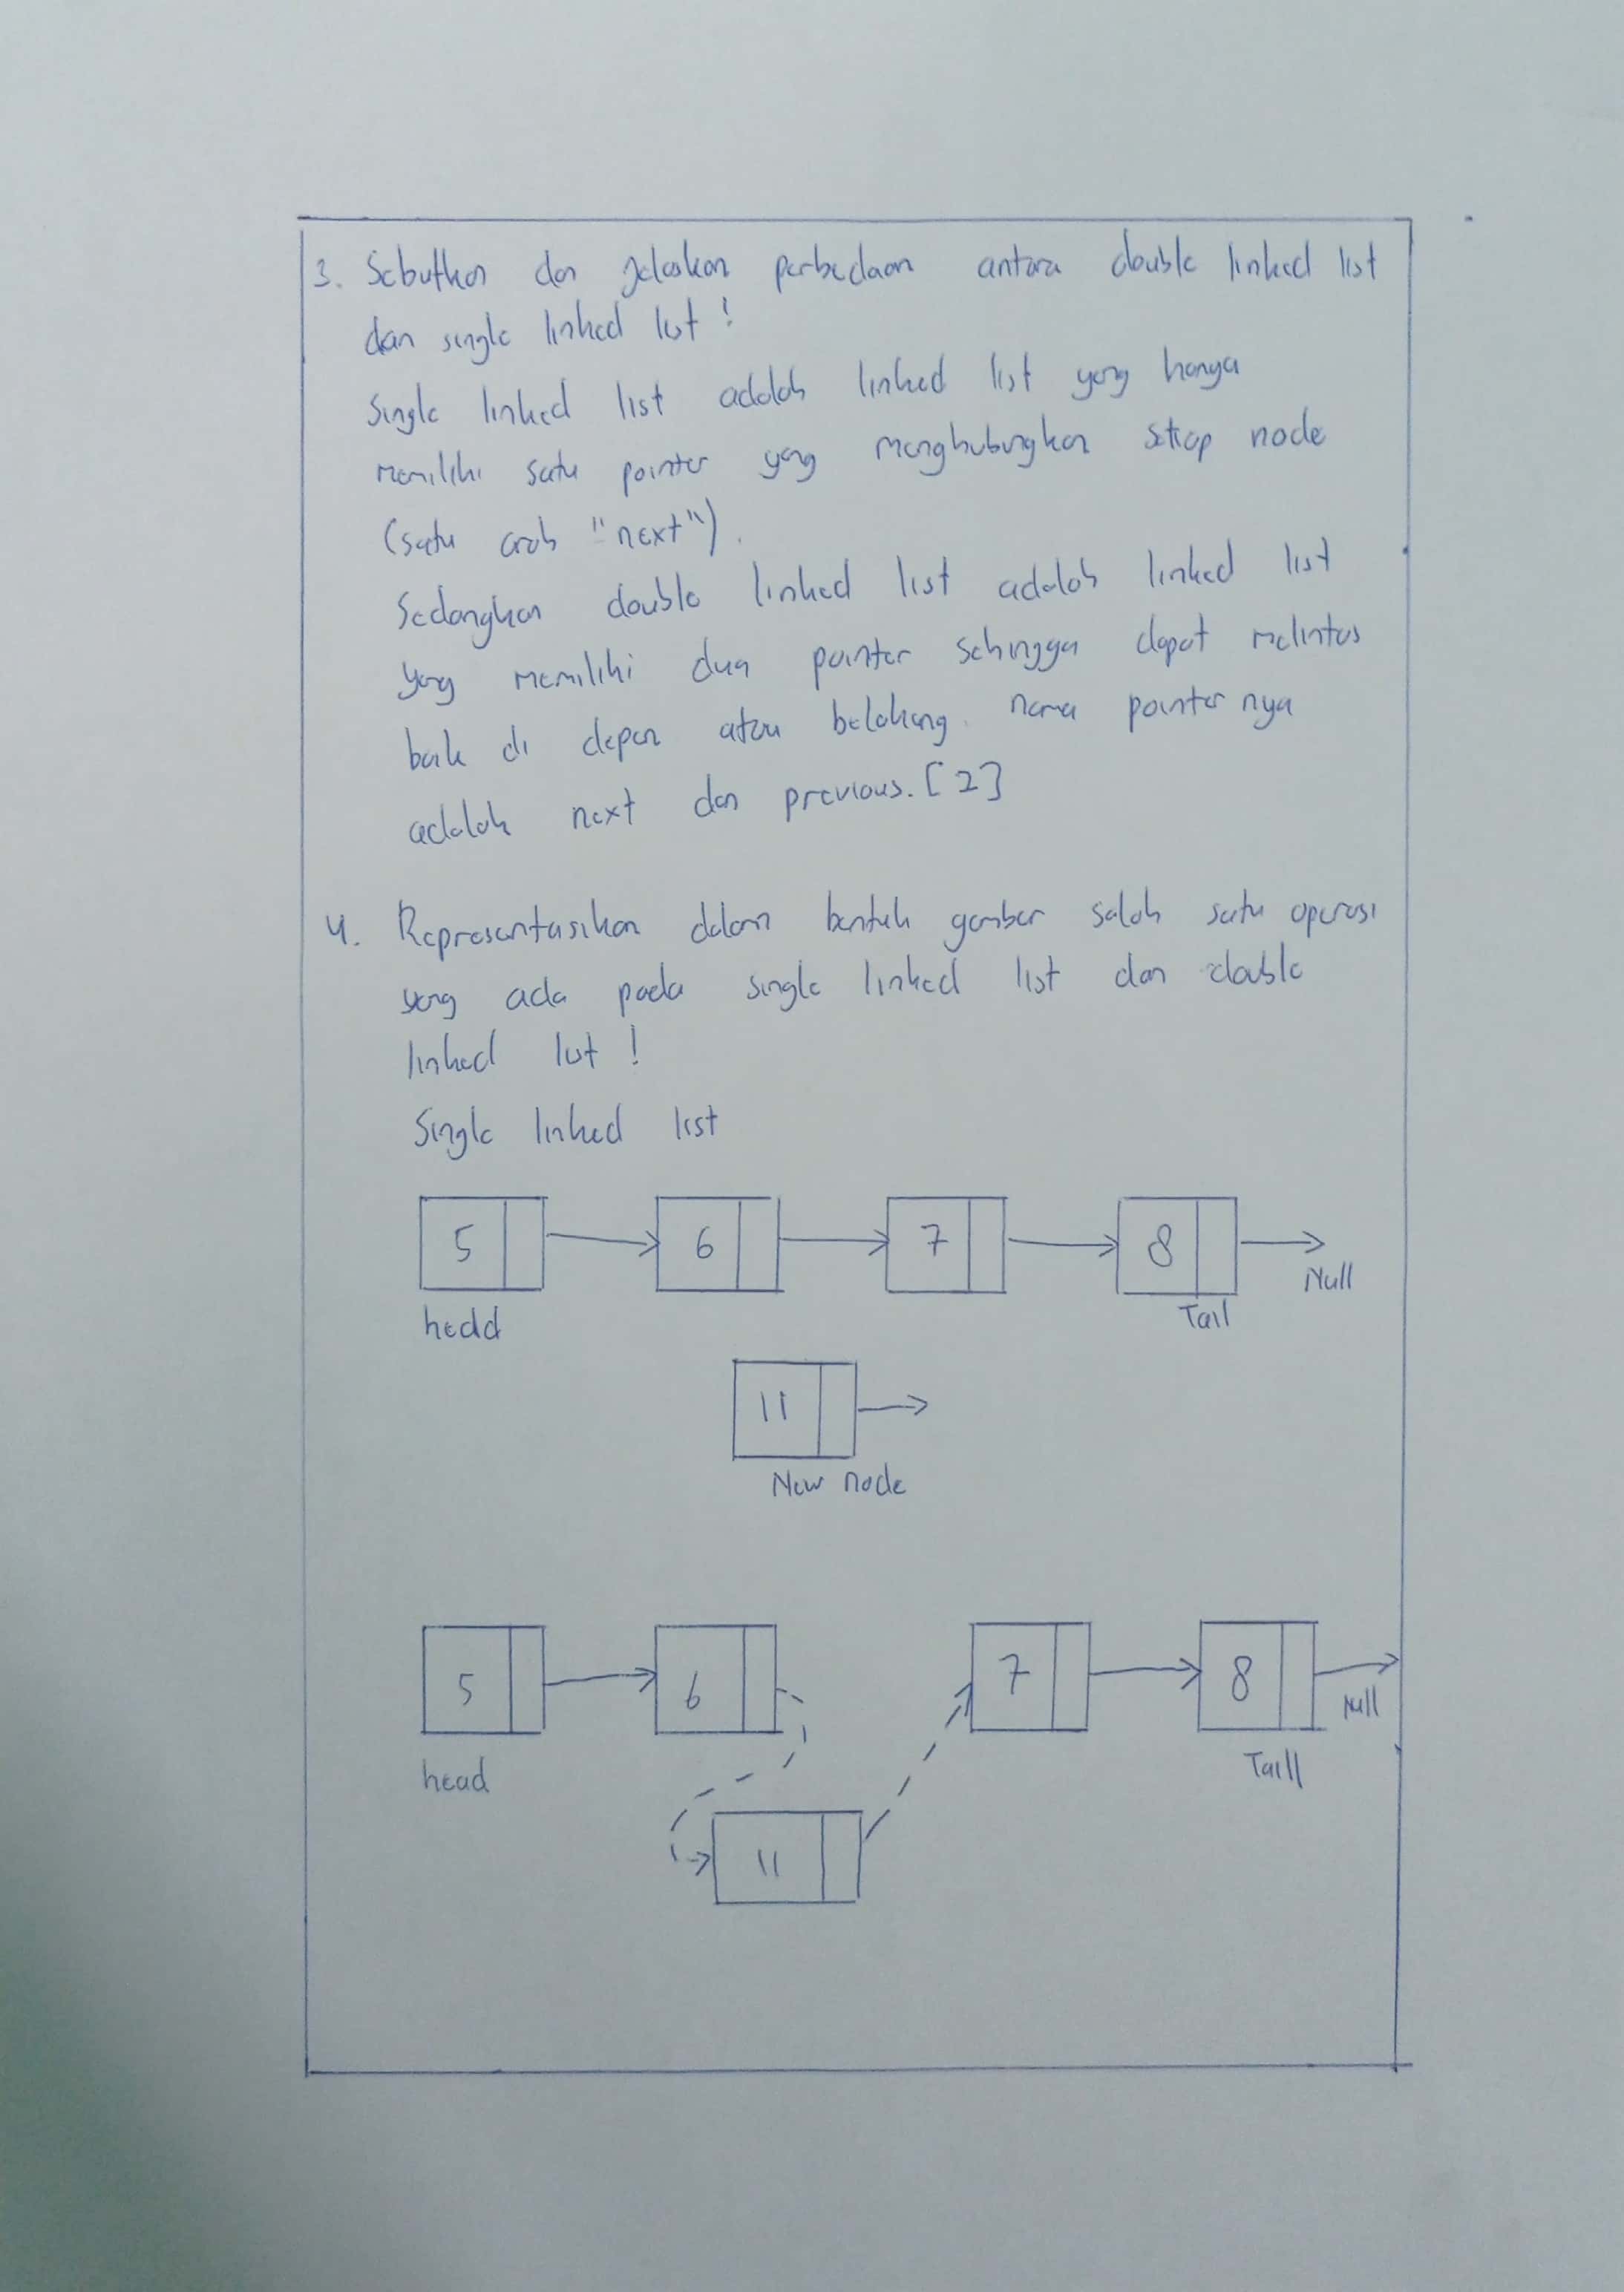 3. Sebutkan dan jelaskan perbedaan antara double linked list
dan single linked list !
Single linked list adalah linked list yang hanya
memiliki satu pointer yang menghubungkan setiap node
(satu arah "next").
Sedangkan double linked list adalah linked list
yang memiliki dua pointer sehingga dapat melintas
baik di depan atau belakang. nama pointer nya
adalah next dan previous. [2]
4. Representasikan dalam bentuk gambar salah satu operasi
yang ada pada single linked list dan double
linked list !
Single linked list
5 6 7 8
Null
head Tail
11
New node
5 6 7 8
Null
head Taill
11